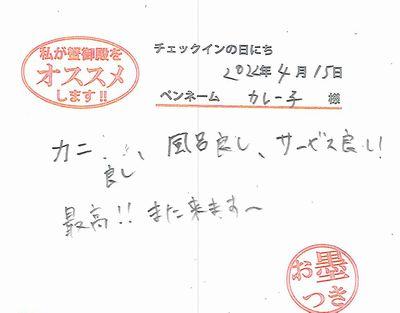 私が蟹御殿を
オススメ
します!!
チェックインの日にち
2022年4月15日
ペンネーム カレー子 様
カニ良し、風呂良し、サービス良し!
最高!!また来ます〜
お墨
つき